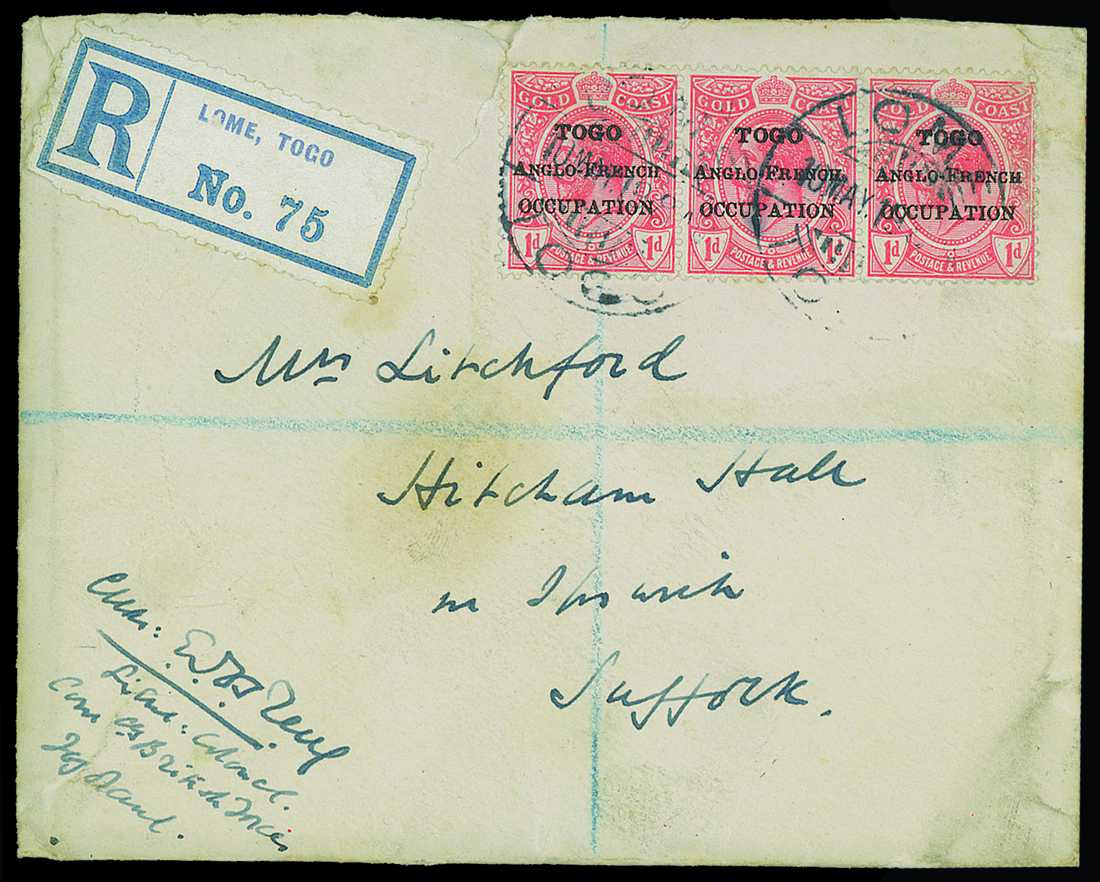 R
LOME, TOGO
No. 75
GOLD COAST
TOGO
ANGLO-FRENCH
OCCUPATION
1d 1d
POSTAGE & REVENUE
GOLD COAST
TOGO
ANGLO-FRENCH
OCCUPATION
1d 1d
POSTAGE & REVENUE
GOLD COAST
TOGO
ANGLO-FRENCH
OCCUPATION
1d 1d
POSTAGE & REVENUE
10 MAY
TOGO
Mrs Litchford
Hitcham Hall
nr Ipswich
Suffolk.
Lieut: Colonel.
Com dg British Forces
Togoland.